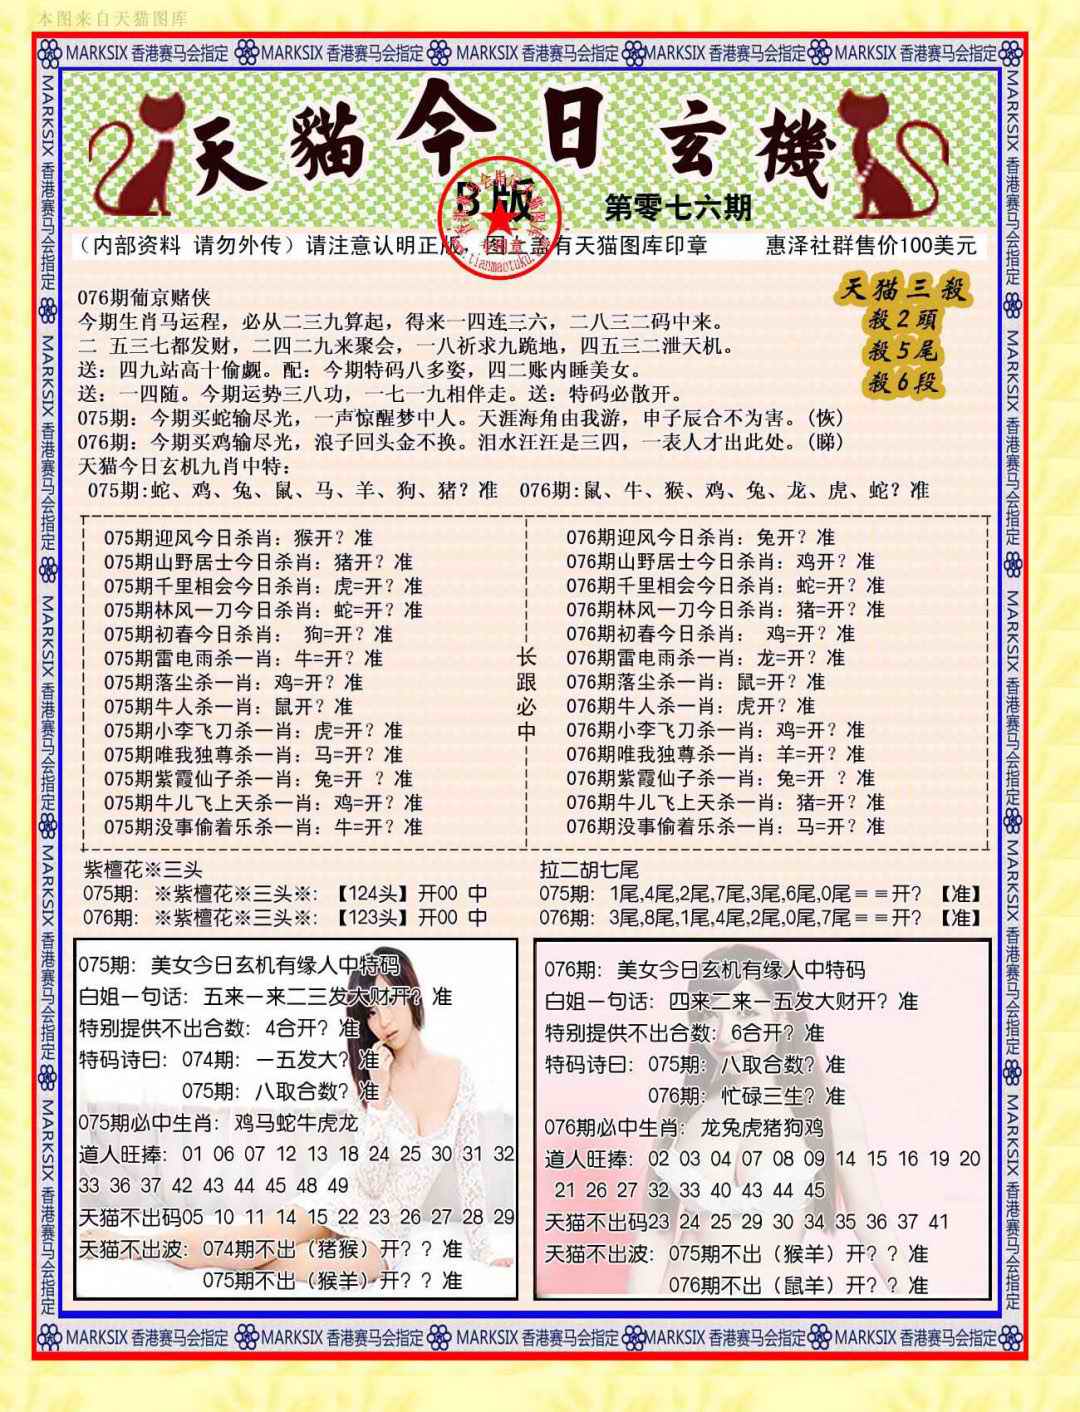 本图来自天猫图库
MARKSIX 香港赛马会指定 MARKSIX 香港赛马会指定 MARKSIX 香港赛马会指定 MARKSIX 香港赛马会指定 MARKSIX 香港赛马会指定
MARKSIX 香港赛马会指定 MARKSIX 香港赛马会指定 MARKSIX 香港赛马会指定 MARKSIX 香港赛马会指定 MARKSIX 香港赛马会指定
MARKSIX 香港赛马会指定 MARKSIX 香港赛马会指定 MARKSIX 香港赛马会指定 MARKSIX 香港赛马会指定 MARKSIX 香港赛马会指定
天貓今日玄機
B版
第零七六期
（内部资料 请勿外传）请注意认明正版，图上盖有天猫图库印章
惠泽社群售价100美元
天猫三殺
殺2頭
殺5尾
殺6段
076期葡京赌侠
今期生肖马运程，必从二三九算起，得来一四连三六，二八三二码中来。
二 五三七都发财，二四二九来聚会，一八祈求九跪地，四五三二泄天机。
送：四九站高十偷觑。配：今期特码八多姿，四二账内睡美女。
送：一四随。今期运势三八功，一七一九相伴走。送：特码必散开。
075期：今期买蛇输尽光，一声惊醒梦中人。天涯海角由我游，申子辰合不为害。(恢)
076期：今期买鸡输尽光，浪子回头金不换。泪水汪汪是三四，一表人才出此处。(睇)
天猫今日玄机九肖中特：
075期:蛇、鸡、兔、鼠、马、羊、狗、猪？准 076期:鼠、牛、猴、鸡、兔、龙、虎、蛇？准
075期迎风今日杀肖：猴开？准
075期山野居士今日杀肖：猪开？准
075期千里相会今日杀肖：虎=开？准
075期林风一刀今日杀肖：蛇=开？准
075期初春今日杀肖： 狗=开？准
075期雷电雨杀一肖：牛=开？准
075期落尘杀一肖：鸡=开？准
075期牛人杀一肖：鼠开？准
075期小李飞刀杀一肖：虎=开？准
075期唯我独尊杀一肖：马=开？准
075期紫霞仙子杀一肖：兔=开 ？准
075期牛儿飞上天杀一肖：鸡=开？准
075期没事偷着乐杀一肖：牛=开？准
长跟必中
076期迎风今日杀肖：兔开？准
076期山野居士今日杀肖：鸡开？准
076期千里相会今日杀肖：蛇=开？准
076期林风一刀今日杀肖：猪=开？准
076期初春今日杀肖： 鸡=开？准
076期雷电雨杀一肖：龙=开？准
076期落尘杀一肖：鼠=开？准
076期牛人杀一肖：虎开？准
076期小李飞刀杀一肖：鸡=开？准
076期唯我独尊杀一肖：羊=开？准
076期紫霞仙子杀一肖：兔=开 ？准
076期牛儿飞上天杀一肖：猪=开？准
076期没事偷着乐杀一肖：马=开？准
紫檀花※三头
075期：※紫檀花※三头※：【124头】开00 中
076期：※紫檀花※三头※：【123头】开00 中
拉二胡七尾
075期：1尾,4尾,2尾,7尾,3尾,6尾,0尾==开？【准】
076期：3尾,8尾,1尾,4尾,2尾,0尾,7尾==开？【准】
075期：美女今日玄机有缘人中特码
白姐一句话：五来一来二三发大财开？准
特别提供不出合数：4合开？准
特码诗曰：074期：一五发大？准
075期：八取合数？准
075期必中生肖：鸡马蛇牛虎龙
道人旺捧：01 06 07 12 13 18 24 25 30 31 32
33 36 37 42 43 44 45 48 49
天猫不出码05 10 11 14 15 22 23 26 27 28 29
天猫不出波：074期不出（猪猴）开？？准
075期不出（猴羊）开？？准
076期：美女今日玄机有缘人中特码
白姐一句话：四来二来一五发大财开？准
特别提供不出合数：6合开？准
特码诗曰：075期：八取合数？准
076期：忙碌三生？准
076期必中生肖：龙兔虎猪狗鸡
道人旺捧：02 03 04 07 08 09 14 15 16 19 20
21 26 27 32 33 40 43 44 45
天猫不出码23 24 25 29 30 34 35 36 37 41
天猫不出波：075期不出（猴羊）开？？准
076期不出（鼠羊）开？？准
MARKSIX 香港赛马会指定 MARKSIX 香港赛马会指定 MARKSIX 香港赛马会指定 MARKSIX 香港赛马会指定 MARKSIX 香港赛马会指定